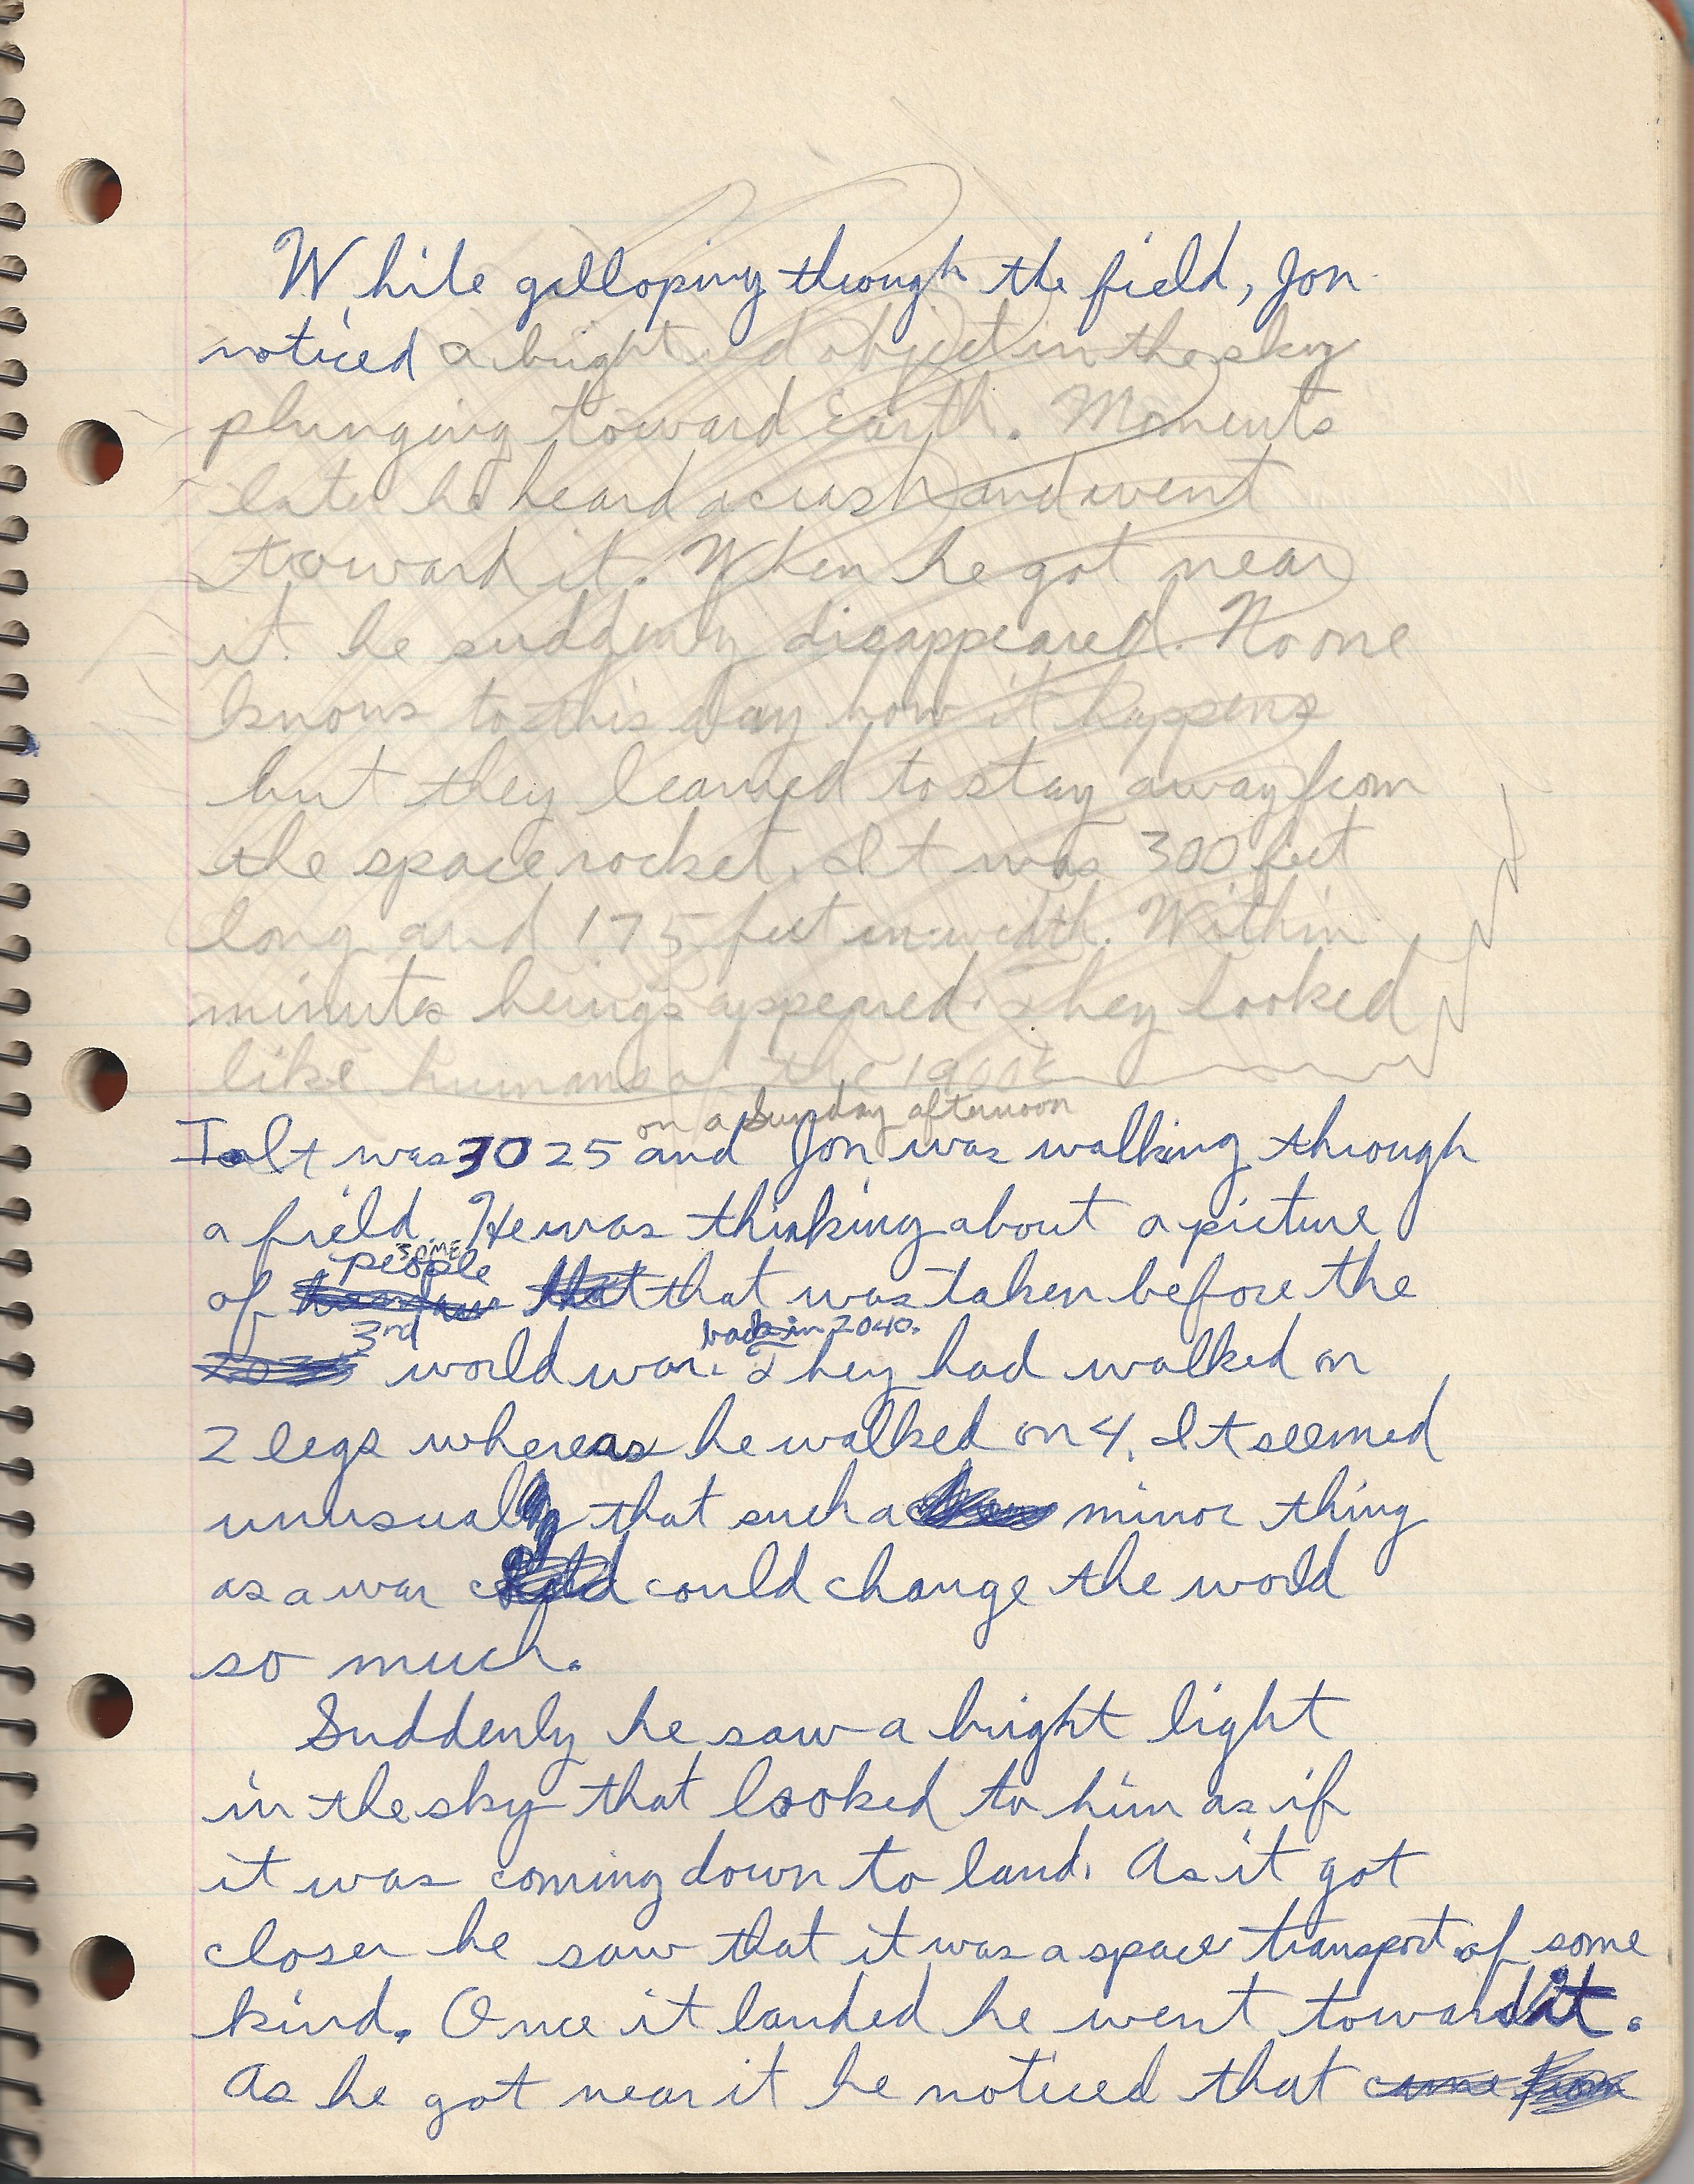 While galloping through the field, Jon
noticed a bright red object in the sky
plunging toward Earth. Moments
later he heard a crash and went
toward it. When he got near
it he suddenly disappeared. No one
knows to this day how it happens
but they learned to stay away from
the space rocket. It was 300 feet
long and 175 feet in width. Within
minutes beings appeared. They looked
like humans of the 1900s
on a Sunday afternoon
It was 3025 and Jon was walking through
a field. He was thinking about a picture
some
people
of that was taken before the
3rd back in 2040.
world war. They had walked on
2 legs whereas he walked on 4. It seemed
unusual that such a minor thing
as a war could change the world
so much.
Suddenly he saw a bright light
in the sky that looked to him as if
it was coming down to land. As it got
closer he saw that it was a space transport of some
kind. Once it landed he went toward it.
As he got near it he noticed that came from